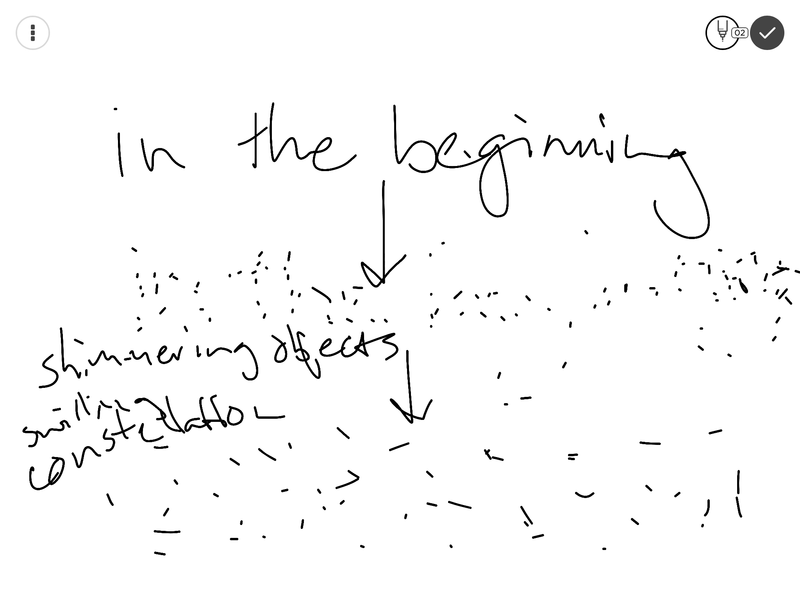 02
in the beginning
shimmering objects
constellation